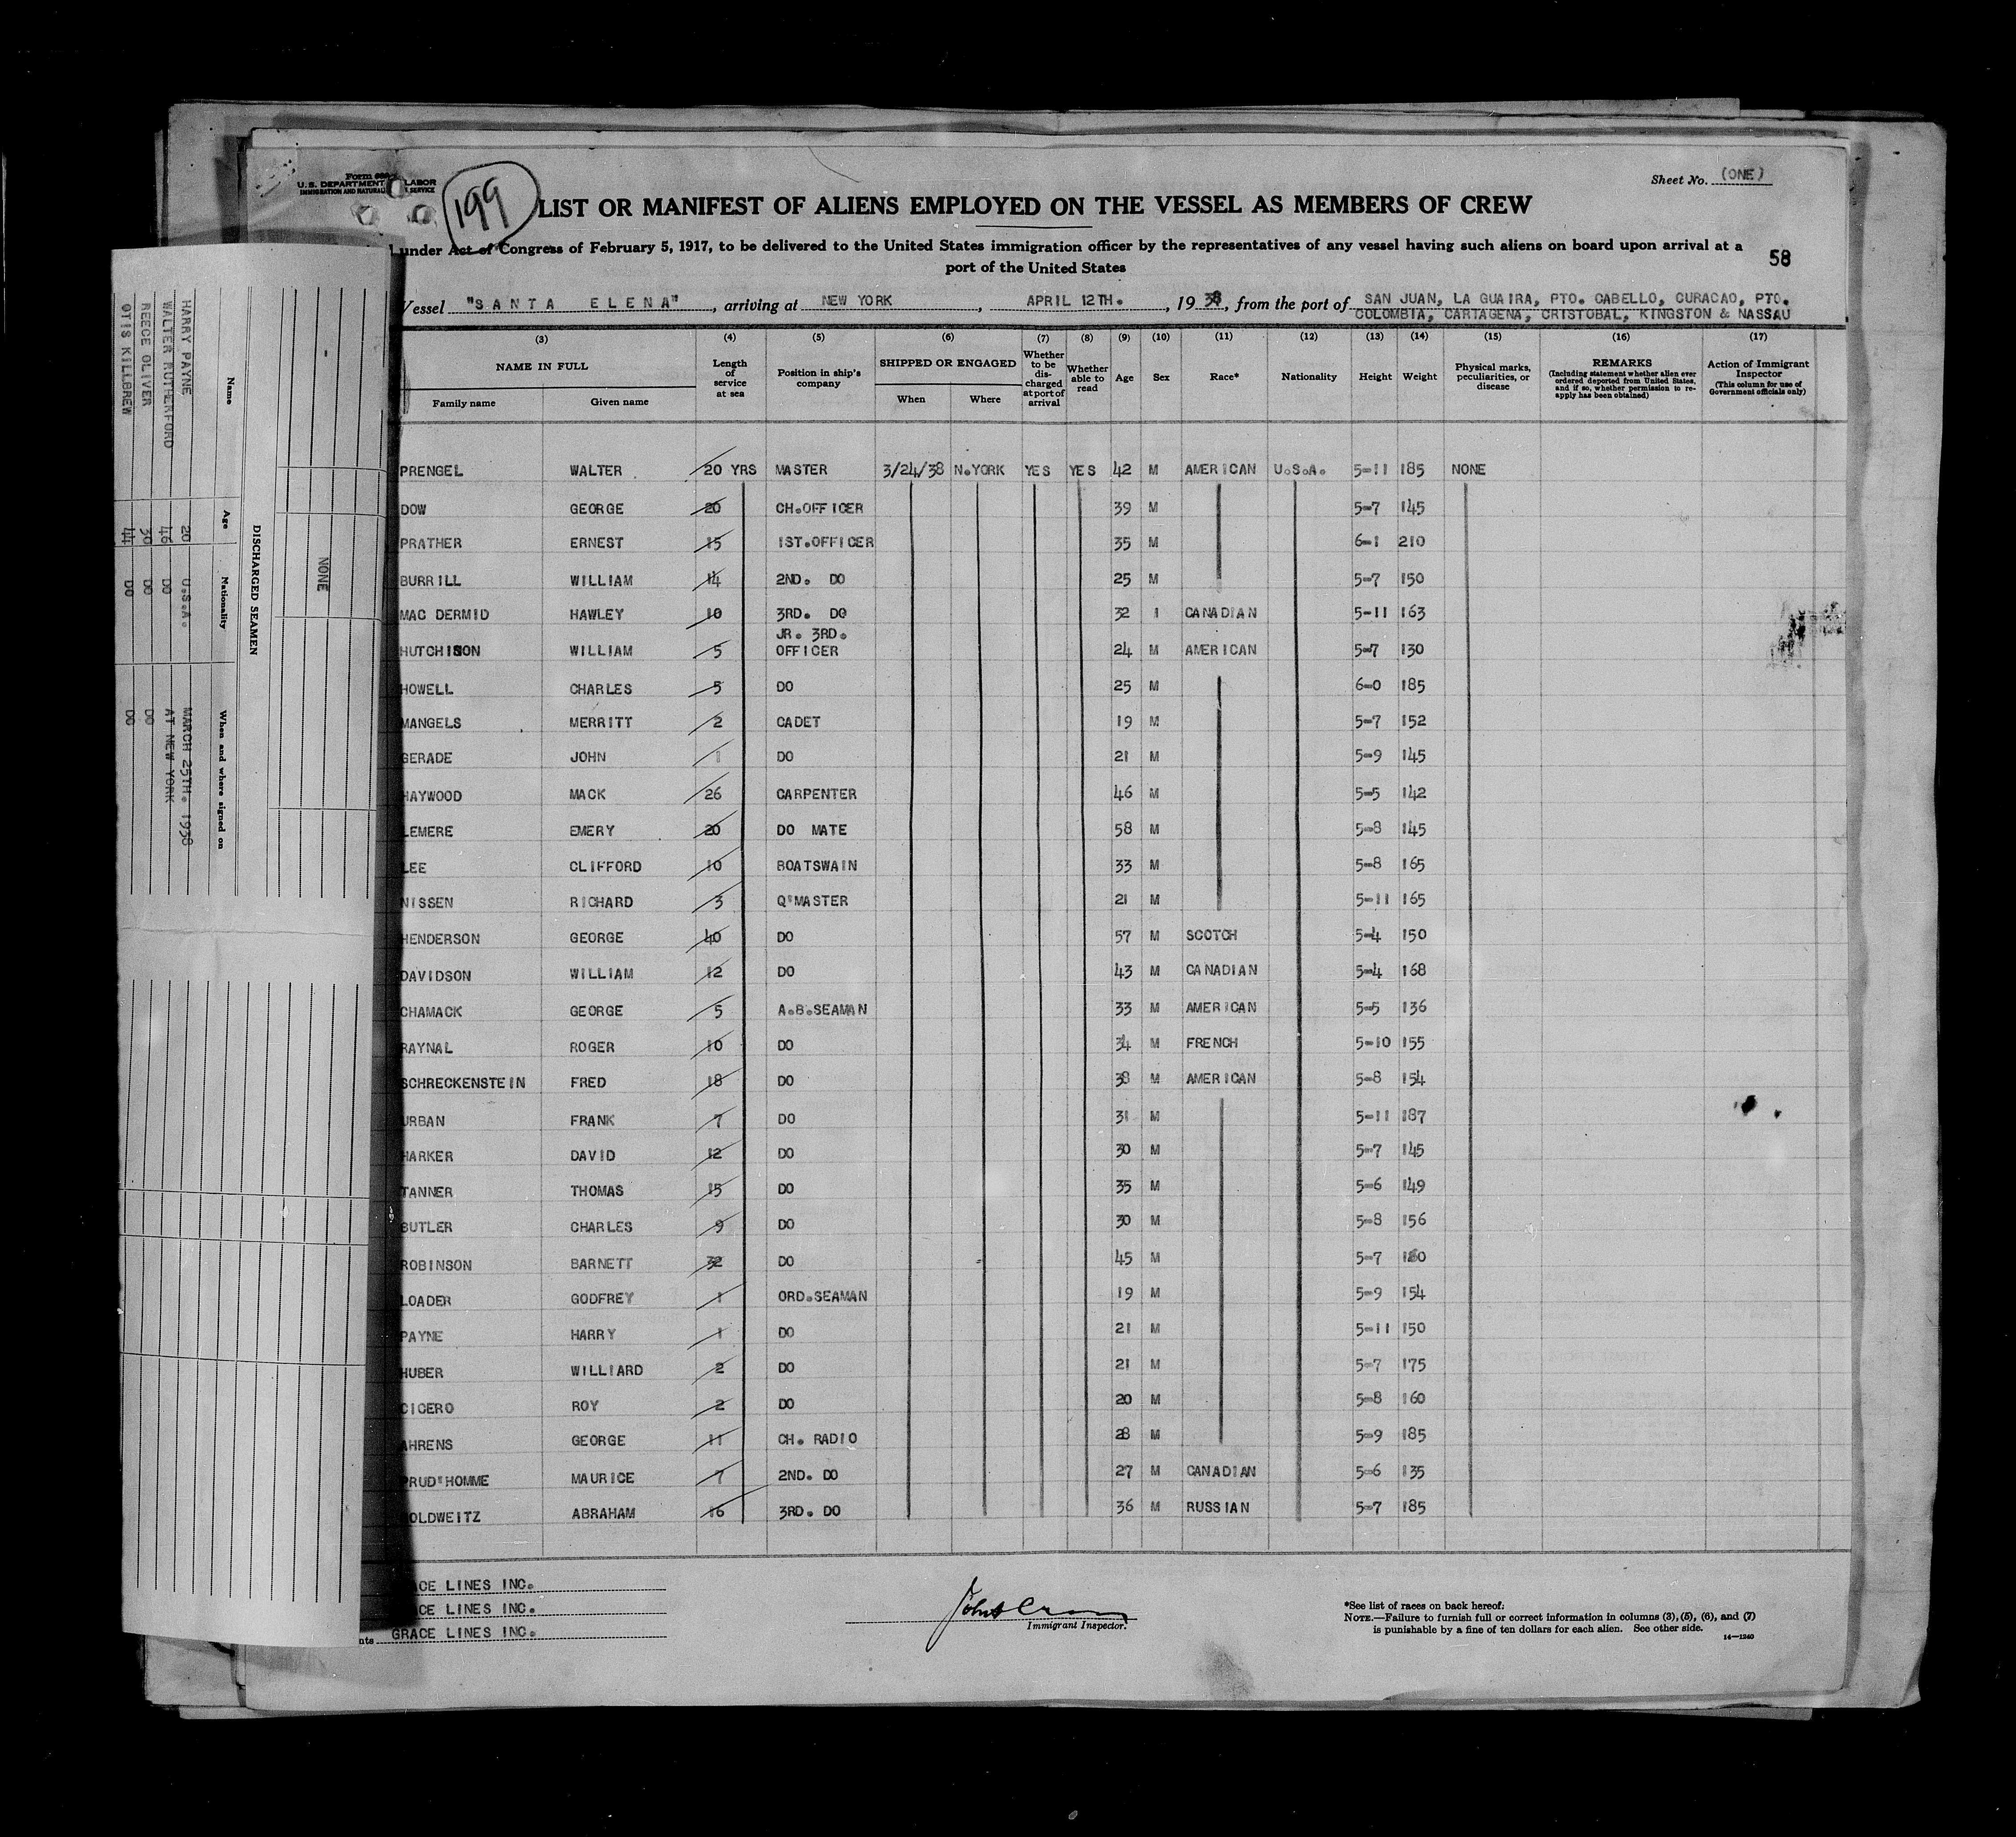 Form
U.S. DEPARTMENT LABOR
IMMIGRATION AND SERVICE
199
Sheet No. (ONE)
LIST OR MANIFEST OF ALIENS EMPLOYED ON THE VESSEL AS MEMBERS OF CREW
under Act of Congress of February 5, 1917, to be delivered to the United States immigration officer by the representatives of any vessel having such aliens on board upon arrival at a
port of the United States
58
Vessel "SANTA ELENA", arriving at NEW YORK, APRIL 12TH., 1938, from the port of SAN JUAN, LA GUAIRA, PTO. CABELLO, CURACAO, PTO.
COLOMBIA, CARTAGENA, CRISTOBAL, KINGSTON & NASSAU
(3) (4) (5) (6) (7) (8) (9) (10) (11) (12) (13) (14) (15) (16) (17)
NAME IN FULL
Family name Given name
Length of service at sea
Position in ship's company
SHIPPED OR ENGAGED
When Where
Whether to be discharged at port of arrival
Whether able to read
Age Sex Race* Nationality Height Weight
Physical marks, peculiarities, or disease
REMARKS
(Including statement whether alien ever ordered deported from United States, and if so, whether permission to re-apply has been obtained)
Action of Immigrant Inspector
(This column for use of Government officials only)
PRENGEL WALTER 20 YRS MASTER 3/24/38 N.YORK YES YES 42 M AMERICAN U.S.A. 5-11 185 NONE
DOW GEORGE 20 CH.OFFICER 39 M 5-7 145
PRATHER ERNEST 15 1ST.OFFICER 35 M 6-1 210
BURRILL WILLIAM 14 2ND. DO 25 M 5-7 150
MAC DERMID HAWLEY 10 3RD. DO 32 CANADIAN 5-11 163
HUTCHISON WILLIAM 5 JR. 3RD. OFFICER 24 M AMERICAN 5-7 130
HOWELL CHARLES 5 DO 25 M 6-0 185
MANGELS MERRITT 2 CADET 19 M 5-7 152
GERADE JOHN 1 DO 21 M 5-9 145
HAYWOOD MACK 26 CARPENTER 46 M 5-5 142
LEMERE EMERY 20 DO MATE 58 M 5-8 145
LEE CLIFFORD 10 BOATSWAIN 33 M 5-8 165
NISSEN RICHARD 3 Q'MASTER 21 M 5-11 165
HENDERSON GEORGE 40 DO 57 M SCOTCH 5-4 150
DAVIDSON WILLIAM 12 DO 43 M CANADIAN 5-4 168
CHAMACK GEORGE 5 A.B.SEAMAN 33 M AMERICAN 5-5 136
RAYNAL ROGER 10 DO 34 M FRENCH 5-10 155
SCHRECKENSTEIN FRED 18 DO 38 M AMERICAN 5-8 154
URBAN FRANK 7 DO 31 M 5-11 187
HARKER DAVID 12 DO 30 M 5-7 145
TANNER THOMAS 15 DO 35 M 5-6 149
BUTLER CHARLES 9 DO 30 M 5-8 156
ROBINSON BARNETT 32 DO 45 M 5-7
LOADER GODFREY 1 ORD.SEAMAN 19 M 5-9 154
PAYNE HARRY 1 DO 21 M 5-11 150
HUBER WILLIARD 2 DO 21 M 5-7 175
CICERO ROY 2 DO 20 M 5-8 160
AHRENS GEORGE 11 CH. RADIO 28 M 5-9 185
PRUD'HOMME MAURICE 7 2ND. DO 27 M CANADIAN 5-6 135
OLDWEITZ ABRAHAM 16 3RD. DO 36 M RUSSIAN 5-7 185
ACE LINES INC.
ACE LINES INC.
nts GRACE LINES INC.
Immigrant Inspector.
*See list of races on back hereof.
NOTE.—Failure to furnish full or correct information in columns (3), (5), (6), and (7)
is punishable by a fine of ten dollars for each alien. See other side.
14—1240
NONE
DISCHARGED SEAMEN
Name Age Nationality When and where signed on
HARRY PAYNE 20 U.S.A. MARCH 25TH. 1938
WALTER RUTHERFORD 46 DO AT NEW YORK
REECE OLIVER 30 DO DO
OTIS KILLBREW 44 DO DO